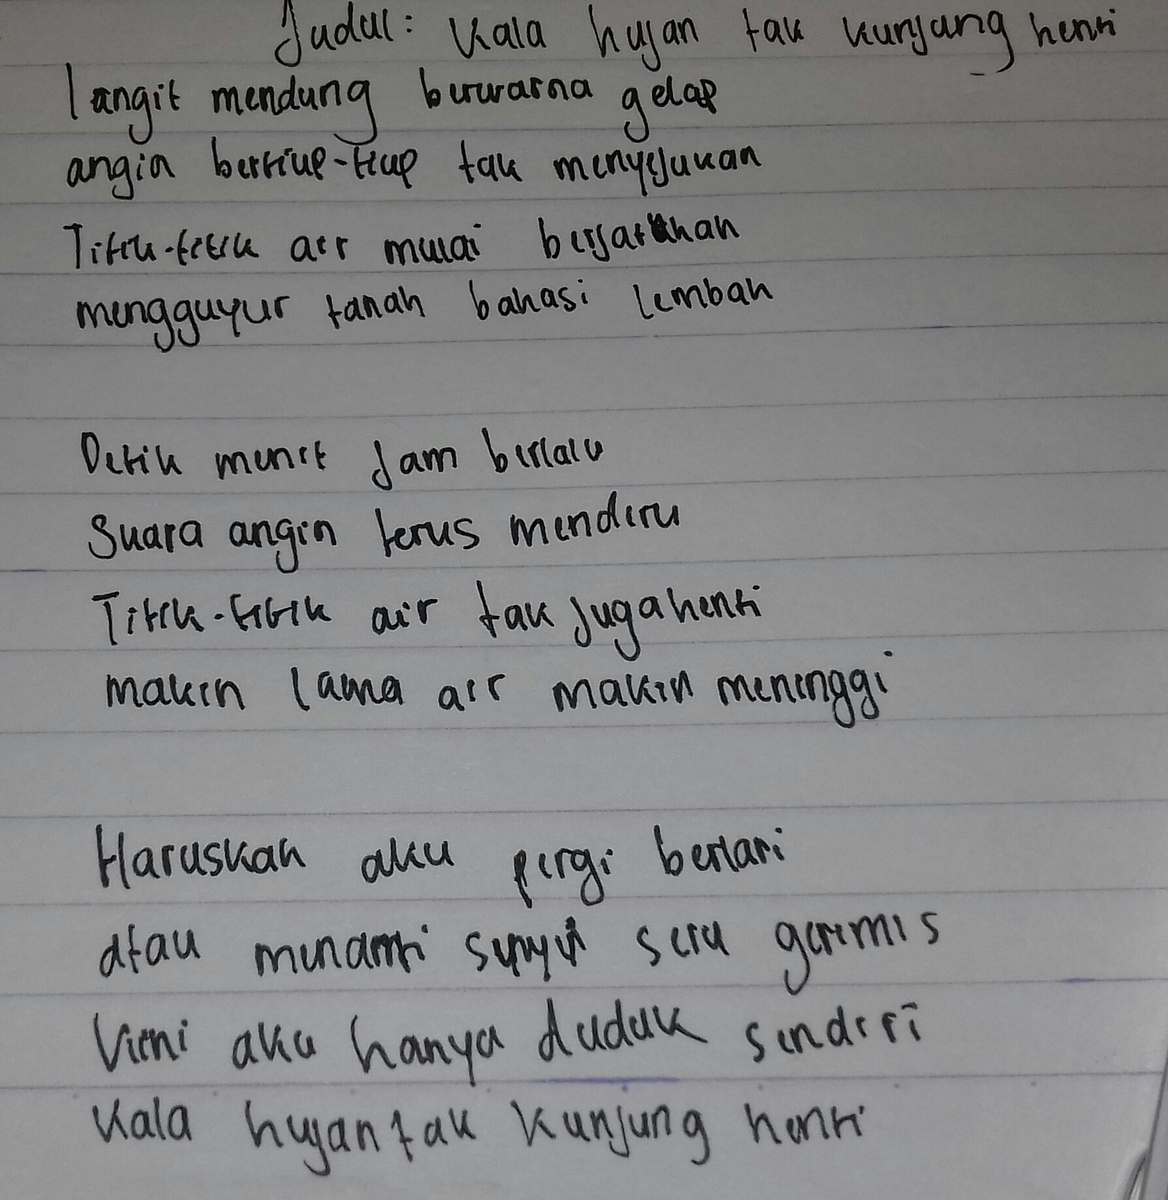 Judul: Kala hujan tak kunjang henti
langit mendung berwarna gelap
angin bertiup-tiup tak menyejukan
Titik-titik air mulai berjatuhan
mengguyur tanah bahasi lembah
Detik menit Jam berlalu
Suara angin terus menderu
Titik-titik air tak juga henti
makin lama air makin meninggi
Haruskah aku pergi berlari
atau menanti sunyi seru gerimis
Kini aku hanya duduk sendiri
Kala hujan tak kunjung henti